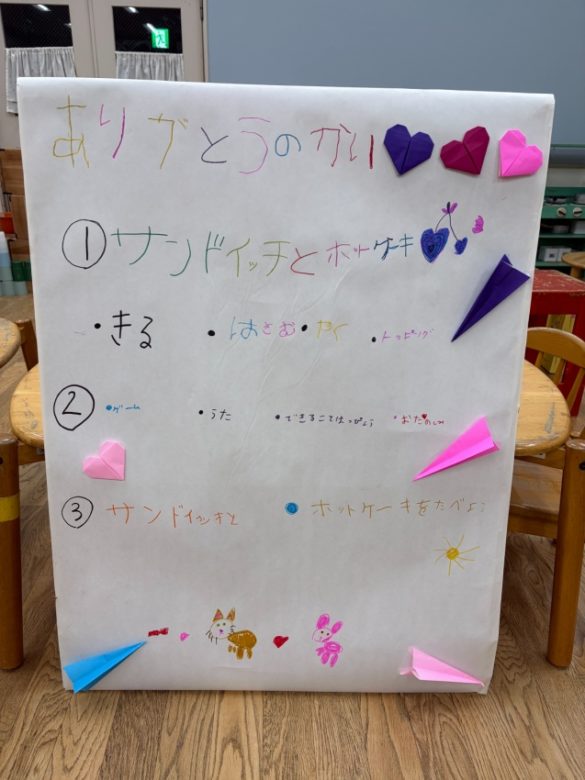 ありがとうのかい
① サンドイッチとホットケーキ
・きる ・はさむ・やく ・トッピング
② ・ゲーム ・うた ・できることはっぴょう ・おたのしみ
③ サンドイッチと ホットケーキをたべよう